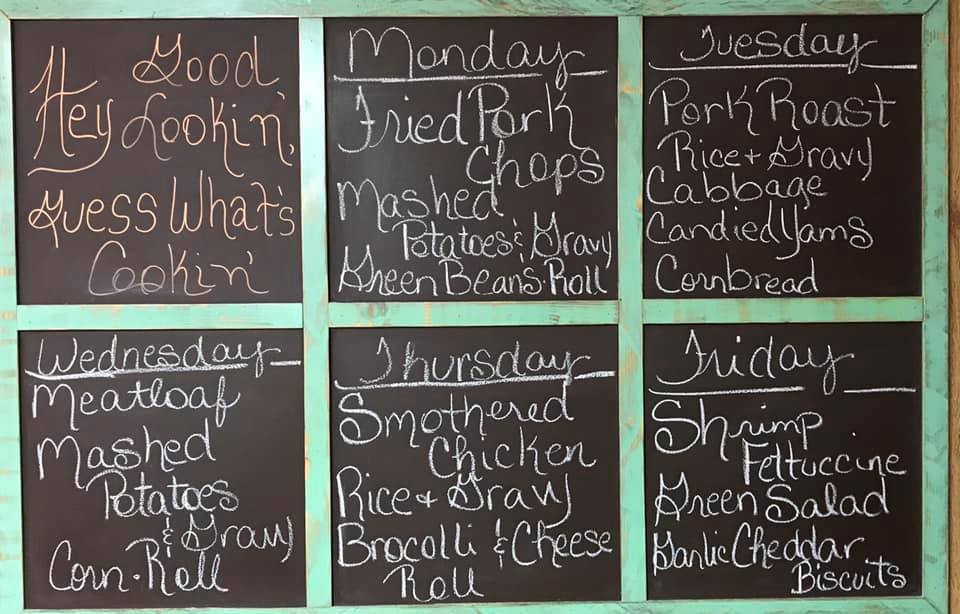 Good
Hey Lookin',
Guess What's
Cookin'
Monday
Fried Pork
Chops
Mashed
Potatoes & Gravy
Green Beans · Roll
Tuesday
Pork Roast
Rice + Gravy
Cabbage
Candied Yams
Cornbread
Wednesday
Meatloaf
Mashed
Potatoes
& Gravy
Corn · Roll
Thursday
Smothered
Chicken
Rice + Gravy
Brocolli & Cheese
Roll
Friday
Shrimp
Fettuccine
Green Salad
Garlic Cheddar
Biscuits